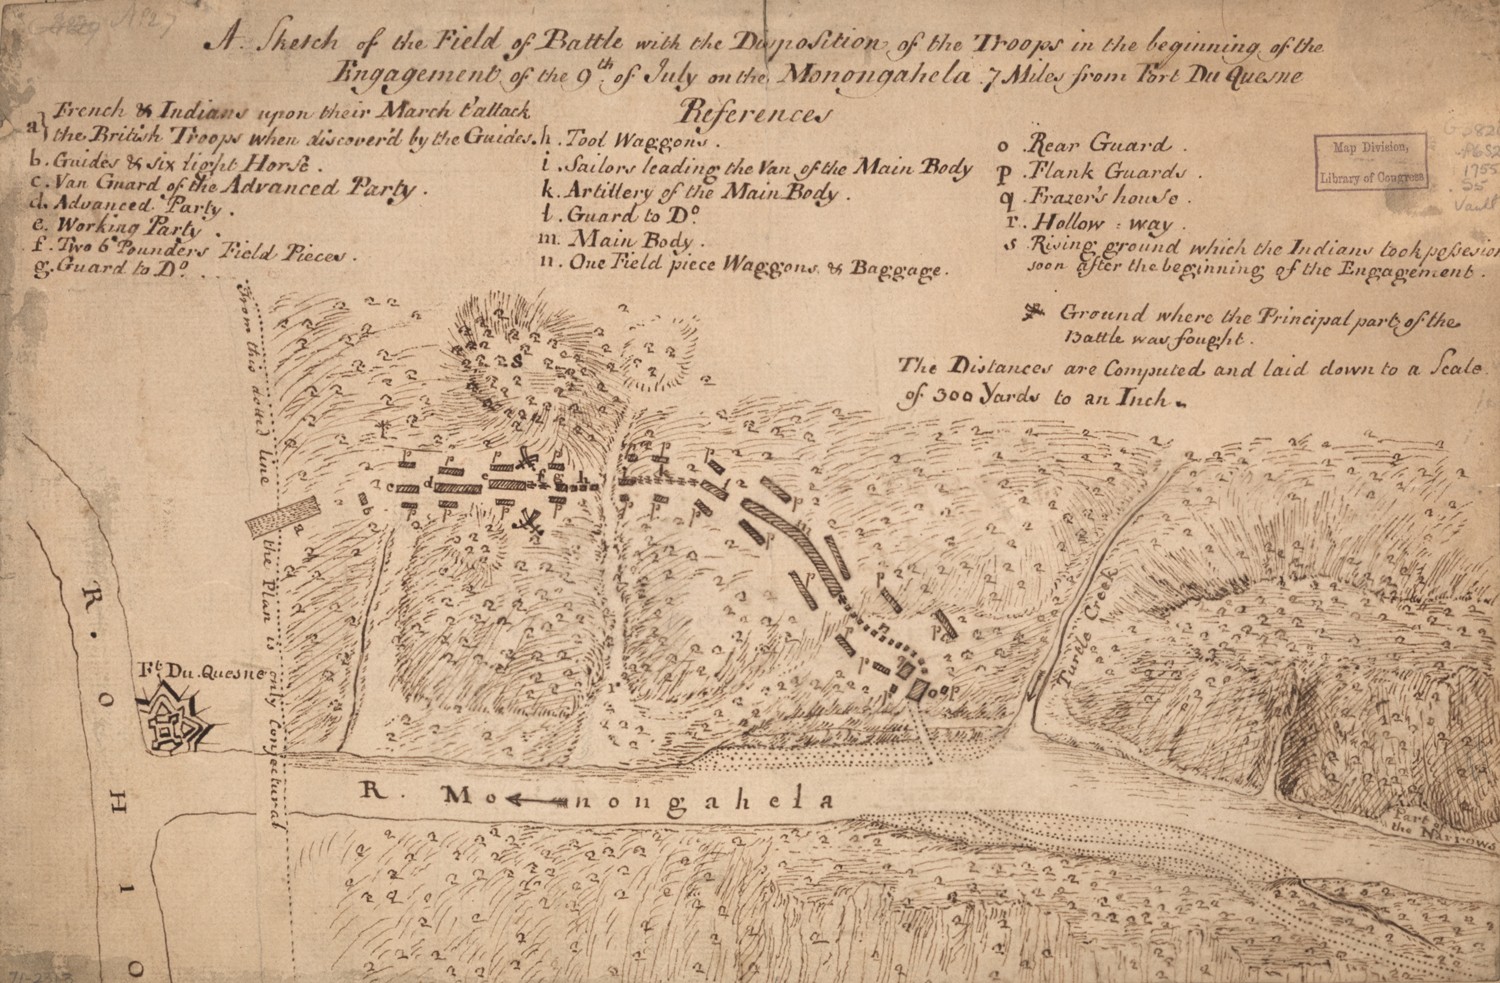 A Sketch of the Field of Battle with the Disposition of the Troops in the beginning of the
Engagement of the 9th of July on the Monongahela 7 Miles from Fort Du Quesne
References
a} French & Indians upon their March t'attack
the British Troops when discover'd by the Guides.
b. Guides & six light Horse.
c. Van Guard of the Advanced Party.
d. Advanced Party.
e. Working Party.
f. Two 6 Pounders Field Pieces.
g. Guard to Do.
h. Tool Waggons.
i. Sailors leading the Van of the Main Body
k. Artillery of the Main Body.
l. Guard to Do.
m. Main Body.
n. One Field piece Waggons & Baggage.
o Rear Guard.
p Flank Guards.
q. Frazer's house.
r. Hollow way.
s Rising ground which the Indians took possesion
soon after the beginning of the Engagement.
Ground where the Principal part of the
Battle was fought.
The Distances are Computed and laid down to a Scale
of 300 Yards to an Inch.
Map Division,
Library of Congress
1755
Vault
From this dotted line the Plan is only Conjectural
R. OHIO
Ft. Du Quesne
R. Monongahela
Turtle Creek
Part of
the Narrows